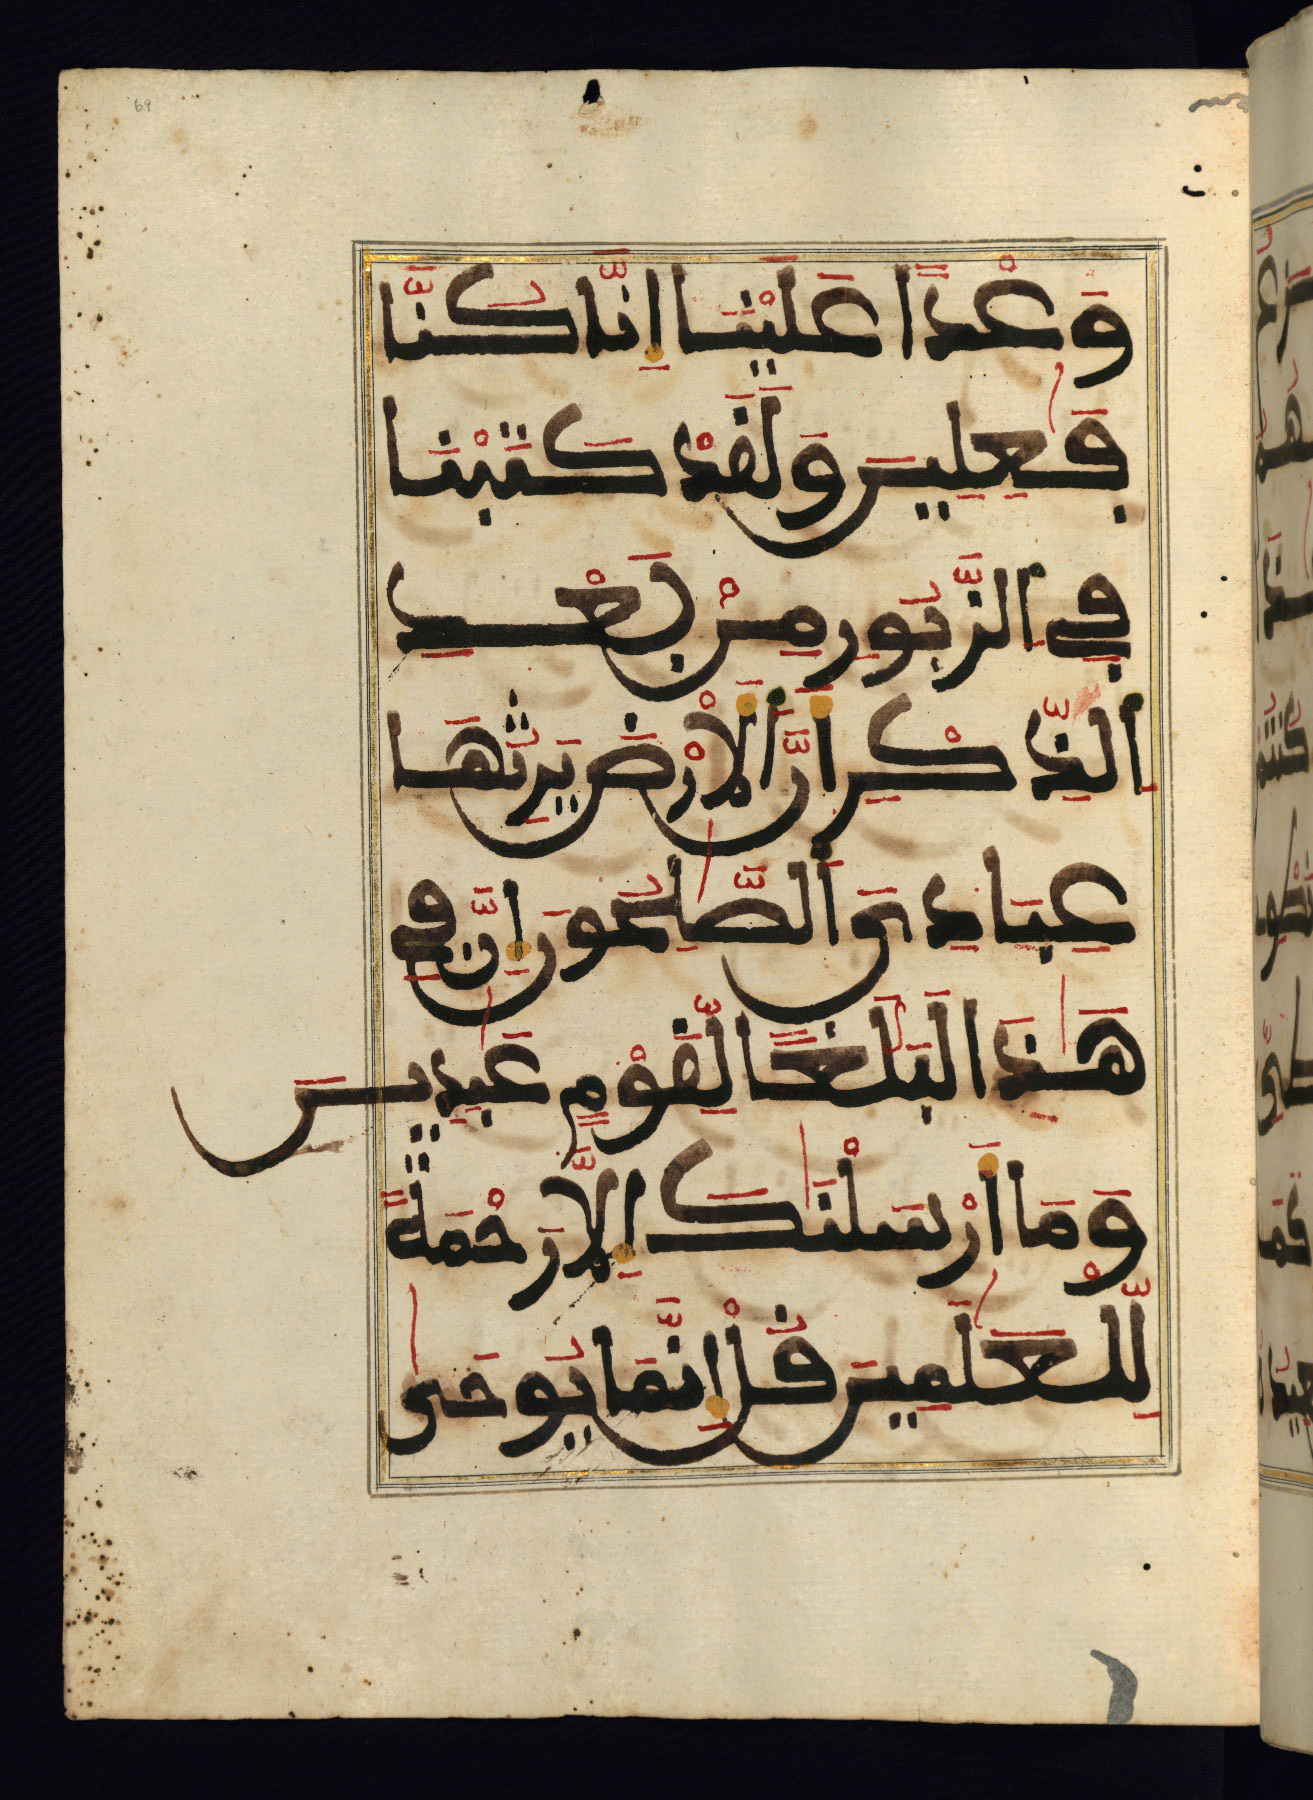 69
وَعْدًا عَلَيْنَا إِنَّا كُنَّا
فَٰعِلِينَ وَلَقَدْ كَتَبْنَا
فِي الزَّبُورِ مِنْ بَعْدِ
الذِّكْرِ أَنَّ الَارْضَ يَرِثُهَا
عِبَادِيَ الصَّٰلِحُونَ إِنَّ فِي
هَٰذَا لَبَلَٰغًا لِّقَوْمٍ عَٰبِدِينَ
وَمَا أَرْسَلْنَٰكَ إِلَّا رَحْمَةً
لِّلْعَٰلَمِينَ قُلِ انَّمَا يُوحَىٰ